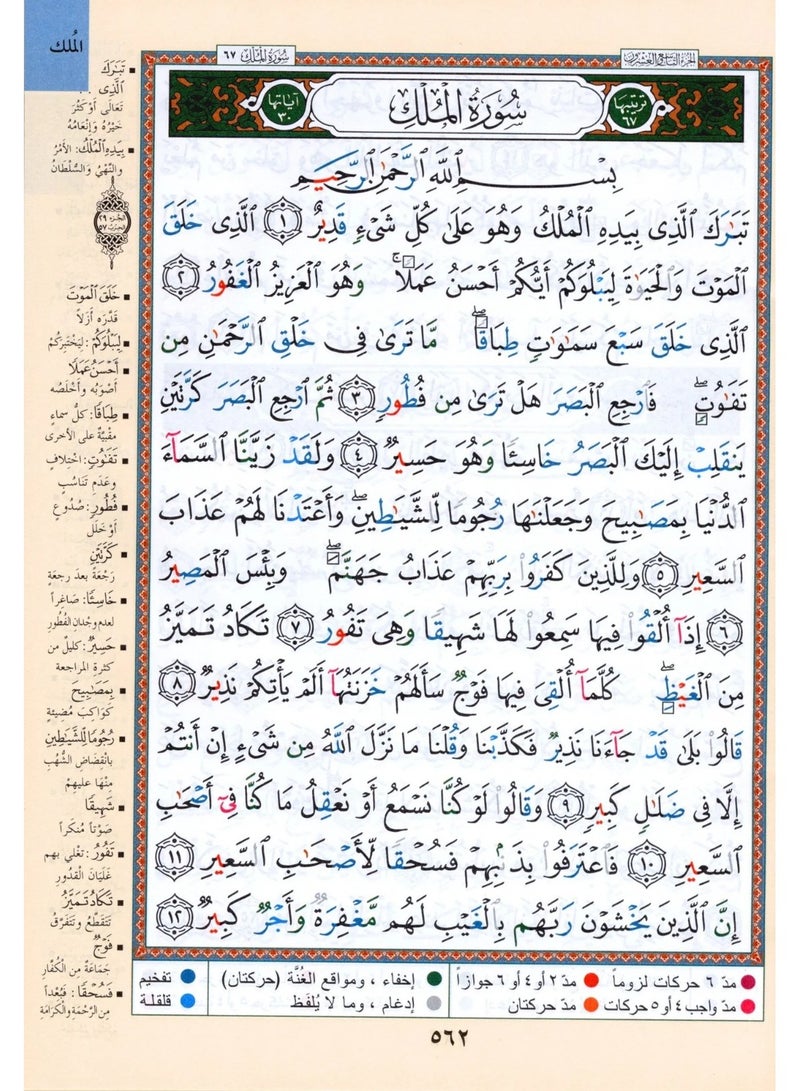 المُلك
الجزء التاسع والعشرون
سُورَةُ المُلْك ٦٧
ترتيبها ٦٧
سُورَةُ المُلْكِ
آياتها ٣٠
بِسْمِ اللَّهِ الرَّحْمَٰنِ الرَّحِيمِ
تَبَٰرَكَ الَّذِى بِيَدِهِ الْمُلْكُ وَهُوَ عَلَىٰ كُلِّ شَىْءٍ قَدِيرٌ ١ الَّذِى خَلَقَ
الْمَوْتَ وَالْحَيَوٰةَ لِيَبْلُوَكُمْ أَيُّكُمْ أَحْسَنُ عَمَلًا ۚ وَهُوَ الْعَزِيزُ الْغَفُورُ ٢
الَّذِى خَلَقَ سَبْعَ سَمَٰوَٰتٍ طِبَاقًا ۖ مَّا تَرَىٰ فِى خَلْقِ الرَّحْمَٰنِ مِن
تَفَٰوُتٍ ۖ فَارْجِعِ الْبَصَرَ هَلْ تَرَىٰ مِن فُطُورٍ ٣ ثُمَّ ارْجِعِ الْبَصَرَ كَرَّتَيْنِ
يَنقَلِبْ إِلَيْكَ الْبَصَرُ خَاسِئًا وَهُوَ حَسِيرٌ ٤ وَلَقَدْ زَيَّنَّا السَّمَآءَ
الدُّنْيَا بِمَصَٰبِيحَ وَجَعَلْنَٰهَا رُجُومًا لِّلشَّيَٰطِينِ ۖ وَأَعْتَدْنَا لَهُمْ عَذَابَ
السَّعِيرِ ٥ وَلِلَّذِينَ كَفَرُوا۟ بِرَبِّهِمْ عَذَابُ جَهَنَّمَ ۖ وَبِئْسَ الْمَصِيرُ
٦ إِذَآ أُلْقُوا۟ فِيهَا سَمِعُوا۟ لَهَا شَهِيقًا وَهِىَ تَفُورُ ٧ تَكَادُ تَمَيَّزُ
مِنَ الْغَيْظِ ۖ كُلَّمَآ أُلْقِىَ فِيهَا فَوْجٌ سَأَلَهُمْ خَزَنَتُهَآ أَلَمْ يَأْتِكُمْ نَذِيرٌ ٨
قَالُوا۟ بَلَىٰ قَدْ جَآءَنَا نَذِيرٌ فَكَذَّبْنَا وَقُلْنَا مَا نَزَّلَ اللَّهُ مِن شَىْءٍ إِنْ أَنتُمْ
إِلَّا فِى ضَلَٰلٍ كَبِيرٍ ٩ وَقَالُوا۟ لَوْ كُنَّا نَسْمَعُ أَوْ نَعْقِلُ مَا كُنَّا فِىٓ أَصْحَٰبِ
السَّعِيرِ ١٠ فَاعْتَرَفُوا۟ بِذَنۢبِهِمْ فَسُحْقًا لِّأَصْحَٰبِ السَّعِيرِ ١١
إِنَّ الَّذِينَ يَخْشَوْنَ رَبَّهُم بِالْغَيْبِ لَهُم مَّغْفِرَةٌ وَأَجْرٌ كَبِيرٌ ١٢
تَبَٰرَكَ
الَّذِى ..
تَعَالَى أوْ كَثُرَ
خَيْرُهُ وَإنْعَامُهُ
بِيَدِهِ الْمُلْكُ: الأمْرُ
والنَّهْيُ والسُّلْطَانُ
الجزء ٢٩
الحزب ٥٧
خَلَقَ الْمَوْتَ
قَدَّرَه أزَلاً
لِيَبْلُوَكُمْ: ليَخْتَبِرَكُمْ
أَحْسَنُ عَمَلًا
أصْوَبُه وأخْلَصُه
طِبَاقًا: كلُّ سماءٍ
مقبيَّة على الأخرى
تَفَٰوُتٍ: اختلافٍ
وعَدَمِ تَنَاسُبٍ
فُطُورٍ: صُدُوعٍ
أوْ خَلَلٍ
كَرَّتَيْنِ
رَجْعَةً بعدَ رجعَةٍ
خَاسِئًا: صَاغِراً
لعدم وجْدَانِ الفُطُورِ
حَسِيرٌ: كليلٌ من
كثرةِ المراجعة
بِمَصَٰبِيحَ
كَوَاكبَ مُضيئةٍ
رُجُومًا لِّلشَّيَٰطِينِ
بانقضاضِ الشُّهُبِ
منْهَا عليهِمْ
شَهِيقًا
صَوْتاً مُنكَراً
تَفُورُ: تغْلي بهم
غَلَيَانَ القُدُورِ
تَكَادُ تَمَيَّزُ
تَتَقَطَّعُ وتَتَفَرَّقُ
فَوْجٌ
جَمَاعَةٌ مِنَ الكُفَّارِ
فَسُحْقًا: فَبُعْداً
مِنَ الرَّحْمَةِ وَالْكَرَامَةِ
مدّ ٦ حركات لزوماً
مدّ ٢ أو ٤ أو ٦ جوازاً
إخفاء ، ومواقع الغُنَّة (حركتان)
تفخيم
مدّ واجب ٤ أو ٥ حركات
مدّ حركتان
إدغام ، وما لا يُلفَظ
قلقلة
٥٦٢